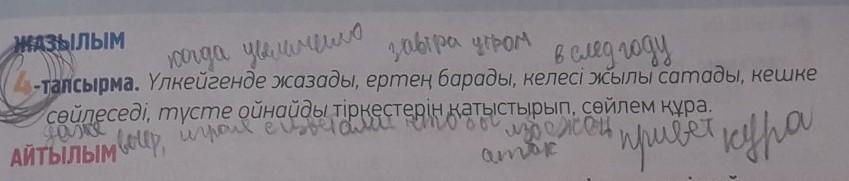 ЖАЗЫЛЫМ
когда увеличено завтра утром в след году
4-тапсырма. Үлкейгенде жазады, ертең барады, келесі жылы сатады, кешке
сөйлеседі, түсте ойнайды тіркестерін қатыстырып, сөйлем құра.
даже
АЙТЫЛЫМ вечер, привет кура